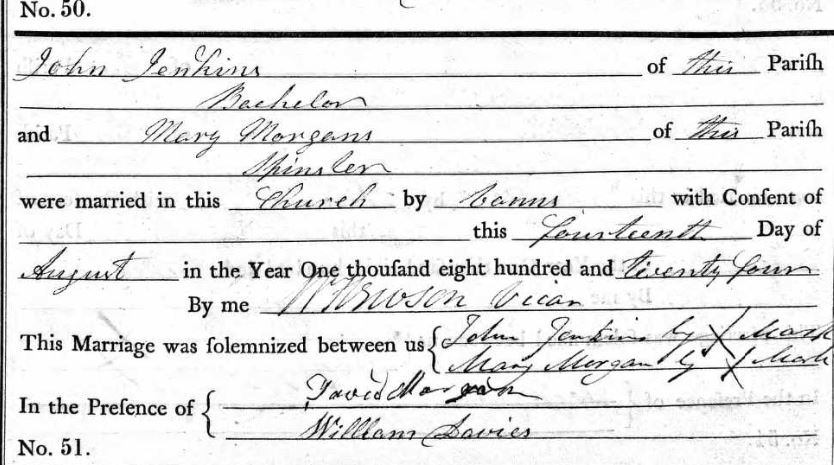 No. 50.
John Jenkins of this Pariſh
Bachelor
and Mary Morgans of this Pariſh
Spinster
were married in this Church by banns with Conſent of
this fourteenth Day of
Auguſt in the Year One thouſand eight hundred and twenty four
By me Vicar
This Marriage was ſolemnized between us { John Jenkins by X Mark
Mary Morgan by X Mark
In the Preſence of { David Morgan
William Davies
No. 51.